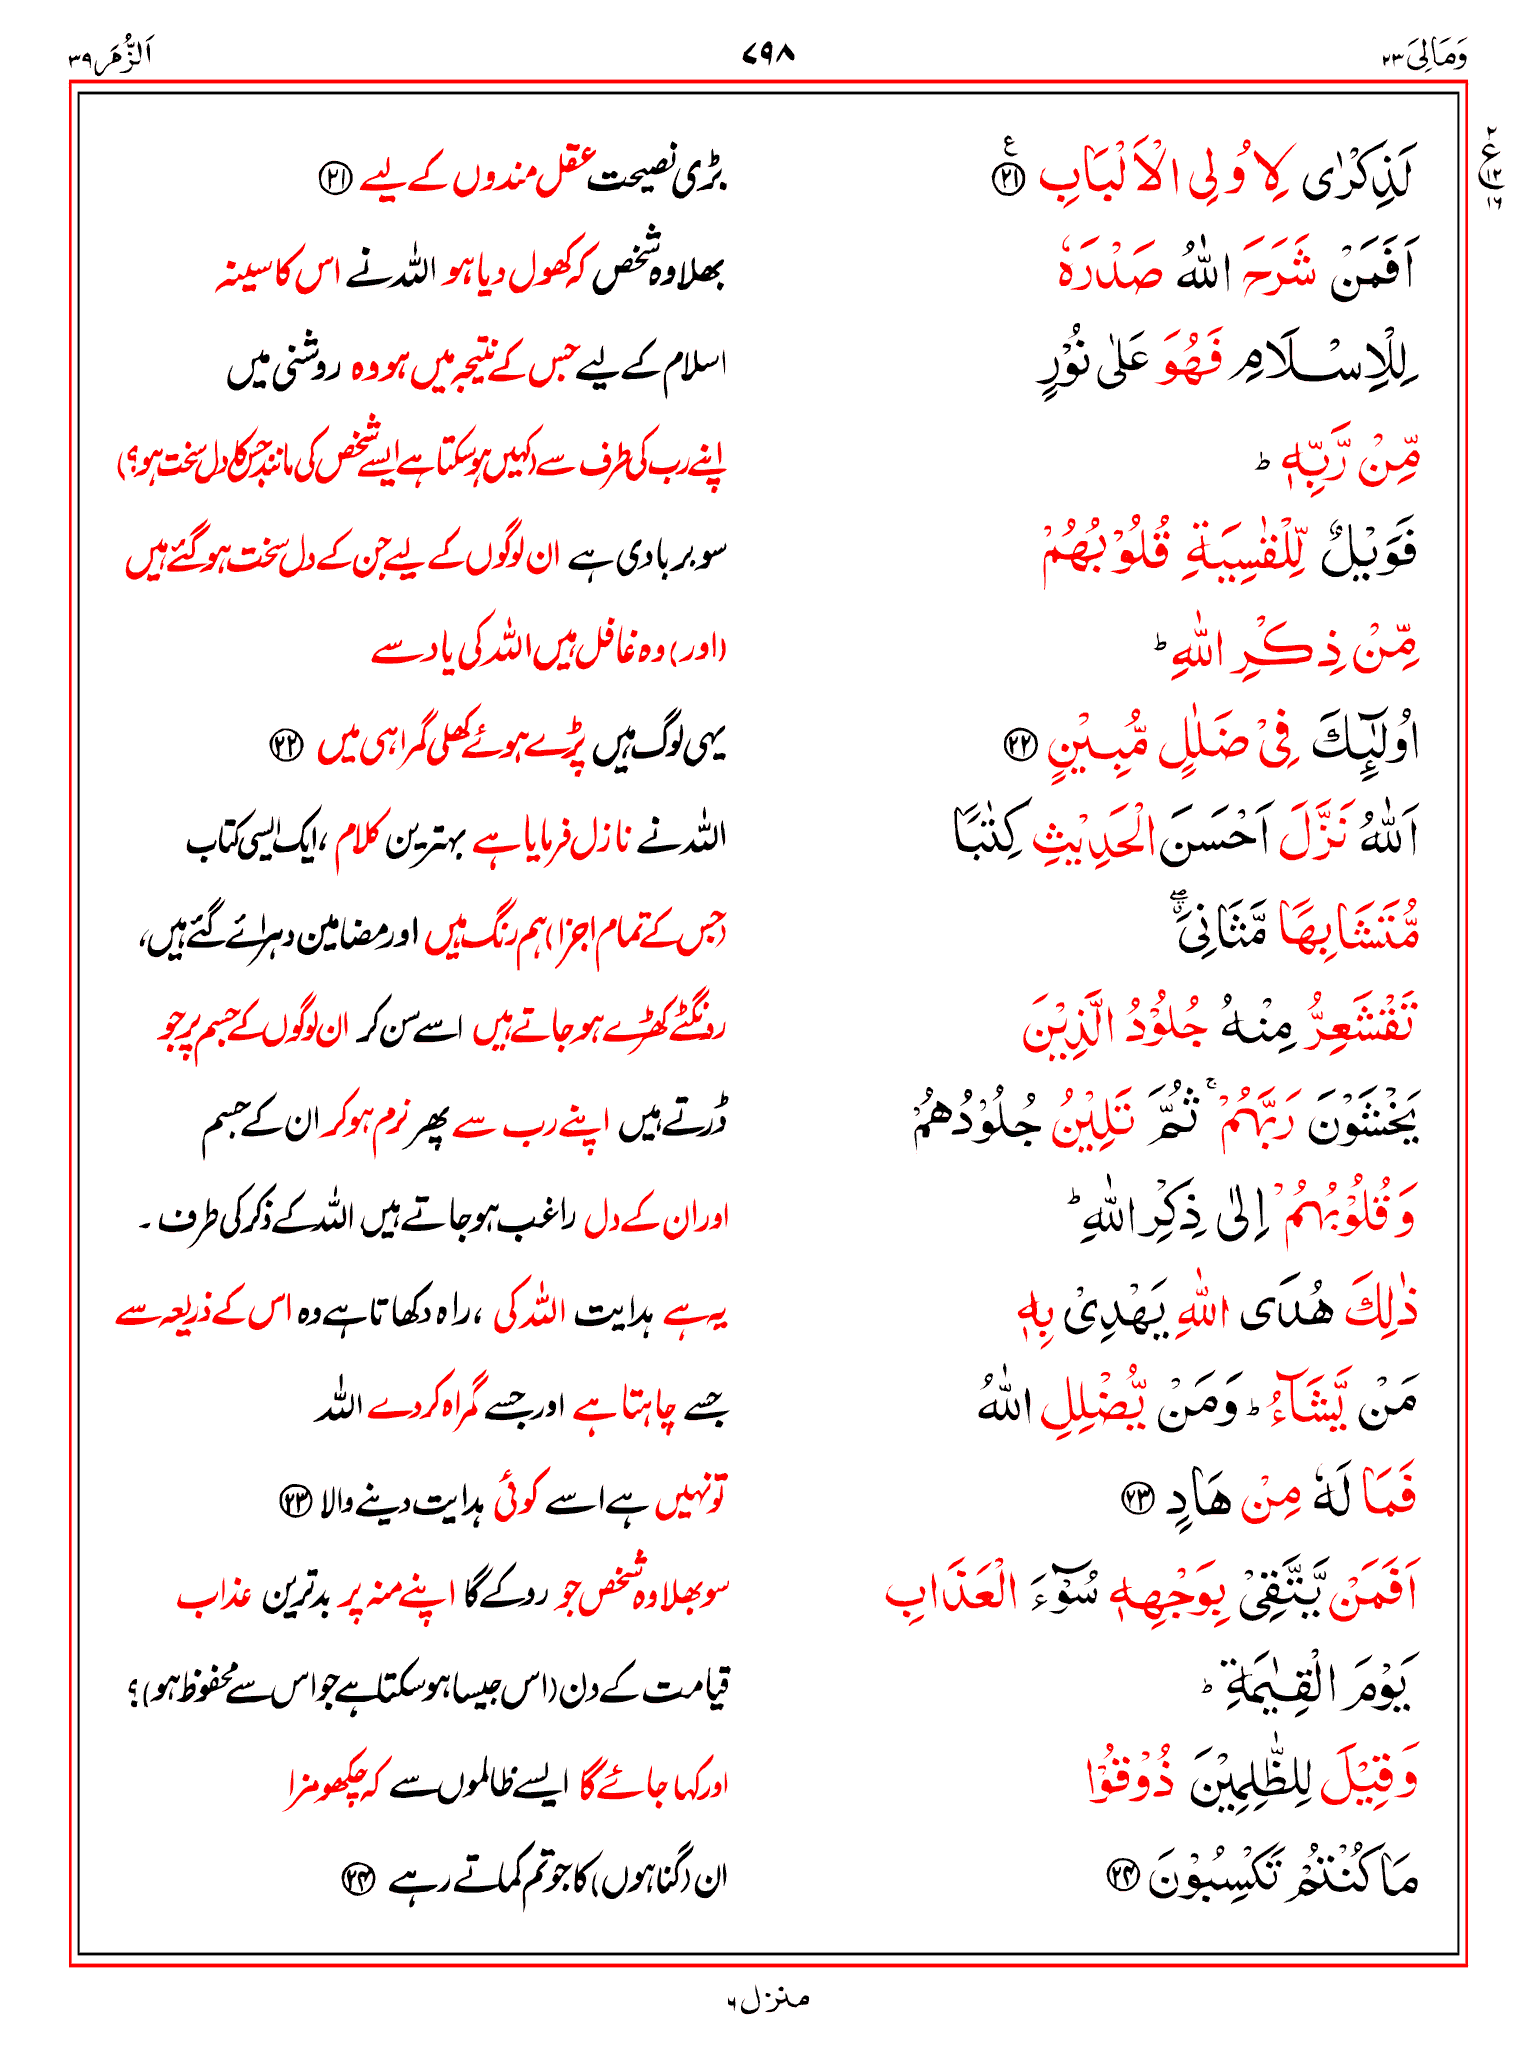 وَمَالِیَ ۲۳
۷۹۸
اَلزُّمَر ۳۹
ع ۲ ۱۲ ۱۶
لَذِكْرٰى لِاُولِى الْاَلْبَابِ ﴿۲۱﴾ ع
بڑی نصیحت عقل مندوں کے لیے ﴿۲۱﴾
اَفَمَنْ شَرَحَ اللّٰهُ صَدْرَهٗ
بھلا وہ شخص کہ کھول دیا ہو اللہ نے اس کا سینہ
لِلْاِسْلَامِ فَهُوَ عَلٰى نُوْرٍ
اسلام کے لیے جس کے نتیجہ میں ہو وہ روشنی میں
مِّنْ رَّبِّهٖ ؕ
اپنے رب کی طرف سے (کہیں ہو سکتا ہے ایسے شخص کی مانند جس کا دل سخت ہو؟)
فَوَيْلٌ لِّلْقٰسِيَةِ قُلُوْبُهُمْ
سو بربادی ہے ان لوگوں کے لیے جن کے دل سخت ہو گئے ہیں
مِّنْ ذِكْرِ اللّٰهِ ؕ
(اور) وہ غافل ہیں اللہ کی یاد سے
اُولٰٓئِكَ فِىْ ضَلٰلٍ مُّبِيْنٍ ﴿۲۲﴾
یہی لوگ ہیں پڑے ہوئے کھلی گمراہی میں ﴿۲۲﴾
اَللّٰهُ نَزَّلَ اَحْسَنَ الْحَدِيْثِ كِتٰبًا
اللہ نے نازل فرمایا ہے بہترین کلام ، ایک ایسی کتاب
مُّتَشَابِهًا مَّثَانِىَ ۖۗ
(جس کے تمام اجزا) ہم رنگ ہیں اور مضامین دہرائے گئے ہیں،
تَقْشَعِرُّ مِنْهُ جُلُوْدُ الَّذِيْنَ
رونگٹے کھڑے ہو جاتے ہیں اسے سن کر ان لوگوں کے جسم پر جو
يَخْشَوْنَ رَبَّهُمْ ۚ ثُمَّ تَلِيْنُ جُلُوْدُهُمْ
ڈرتے ہیں اپنے رب سے پھر نرم ہو کر ان کے جسم
وَقُلُوْبُهُمْ اِلٰى ذِكْرِ اللّٰهِ ؕ
اور ان کے دل راغب ہو جاتے ہیں اللہ کے ذکر کی طرف ۔
ذٰلِكَ هُدَى اللّٰهِ يَهْدِىْ بِهٖ
یہ ہے ہدایت اللہ کی ، راہ دکھاتا ہے وہ اس کے ذریعہ سے
مَنْ يَّشَآءُ ؕ وَمَنْ يُّضْلِلِ اللّٰهُ
جسے چاہتا ہے اور جسے گمراہ کر دے اللہ
فَمَا لَهٗ مِنْ هَادٍ ﴿۲۳﴾
تو نہیں ہے اسے کوئی ہدایت دینے والا ﴿۲۳﴾
اَفَمَنْ يَّتَّقِىْ بِوَجْهِهٖ سُوْٓءَ الْعَذَابِ
سو بھلا وہ شخص جو روکے گا اپنے منہ پر بدترین عذاب
يَوْمَ الْقِيٰمَةِ ؕ
قیامت کے دن (اس جیسا ہو سکتا ہے جو اس سے محفوظ ہو)؟
وَقِيْلَ لِلظّٰلِمِيْنَ ذُوْقُوْا
اور کہا جائے گا ایسے ظالموں سے کہ چکھو مزا
مَا كُنْتُمْ تَكْسِبُوْنَ ﴿۲۴﴾
ان (گناہوں) کا جو تم کماتے رہے ﴿۲۴﴾
منزل ۶